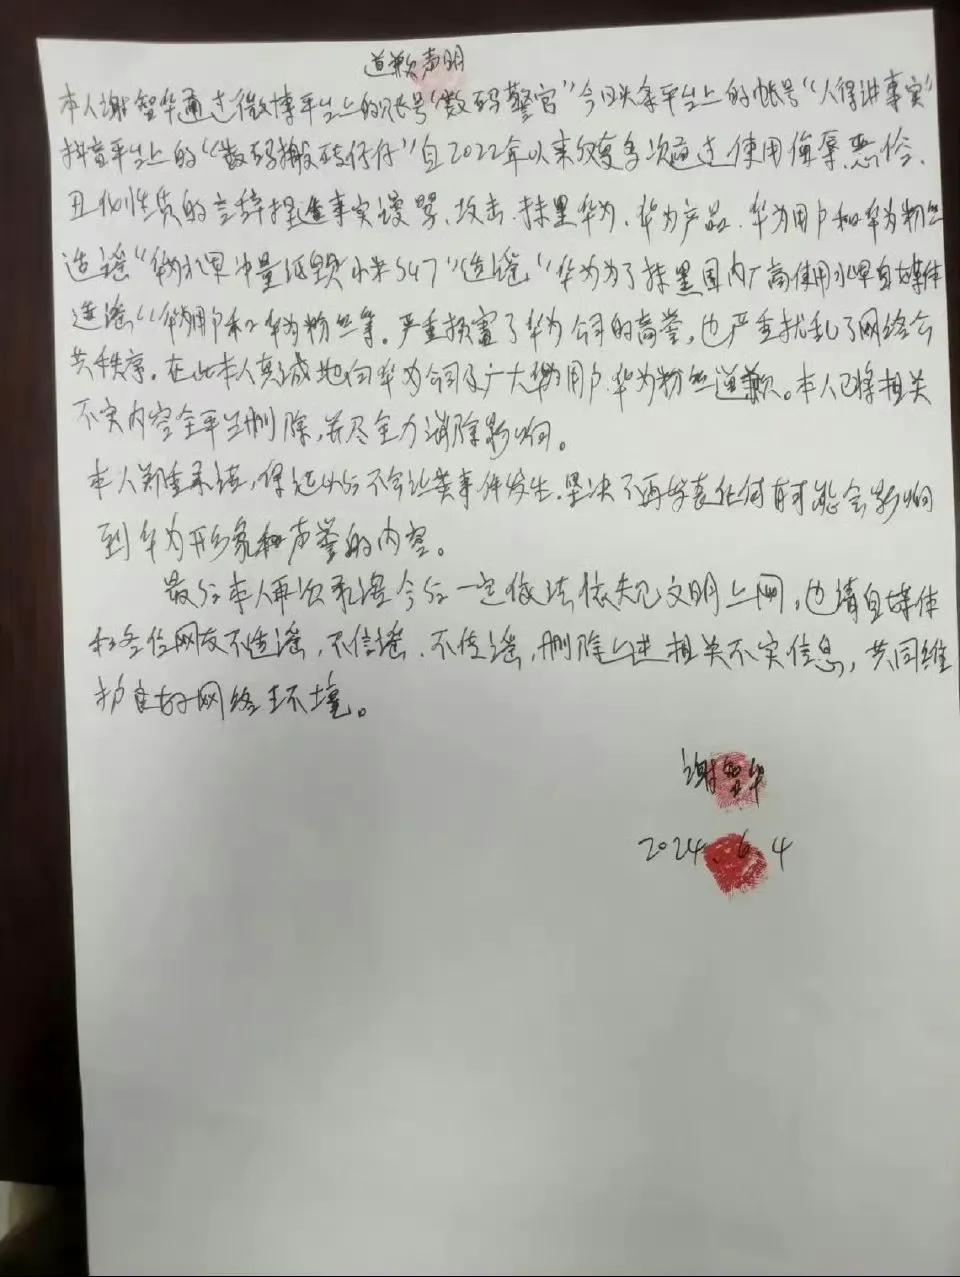 道歉声明
本人谢智华通过微博平台上的账号“数码警官”今日头条平台上的帐号“人得讲事实”
抖音平台上的“数码搬砖仔仔”自2022年以来反复多次通过使用侮辱恶俗、
丑化性质的言辞捏造事实谩骂、攻击、抹黑华为、华为产品、华为用户和华为粉丝
造谣“华为水军冲量诋毁小米SU7”造谣“华为为了抹黑国内厂商使用水军自媒体
造谣“华为用户和华为粉丝等。严重损害了华为公司的商誉，也严重扰乱了网络公
共秩序。在此本人真诚地向华为公司及广大华为用户、华为粉丝道歉。本人已将相关
不实内容全平台删除，并尽全力消除影响。
本人郑重承诺，保证以后不会让类事件发生，坚决不再发表任何有可能会影响
到华为形象和声誉的内容。
最后本人再次承诺今后一定依法依规文明上网，也请自媒体
和各位网友不造谣，不信谣、不传谣，删除上述相关不实信息，共同维
护良好网络环境。
谢智华
2024.6.4